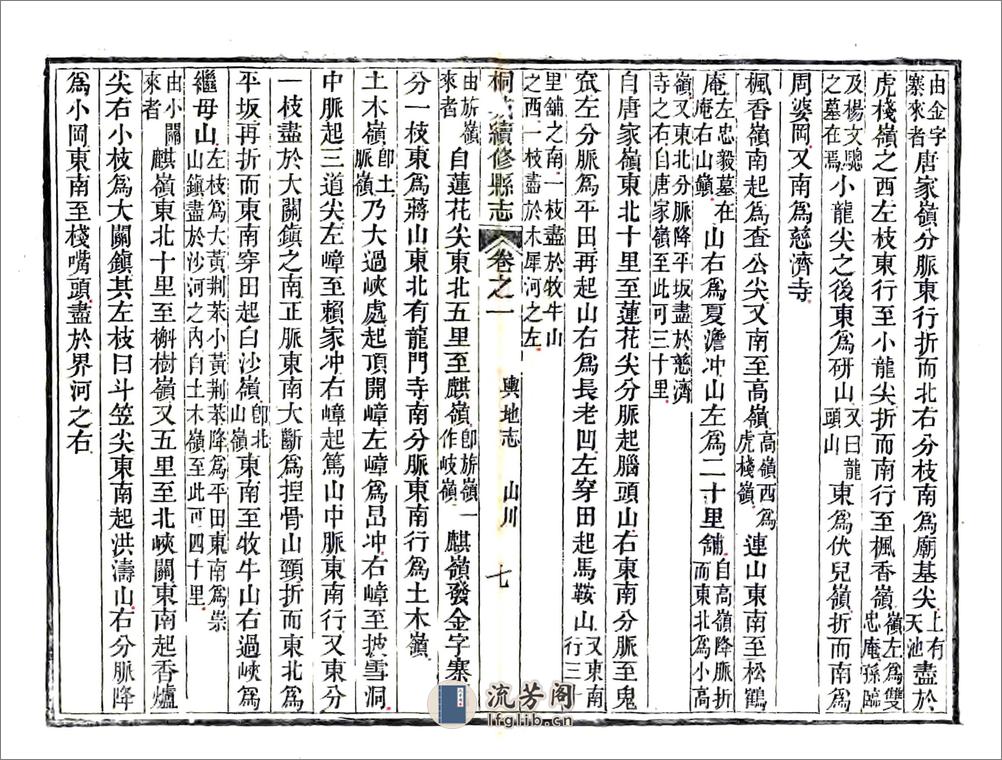 由金字寨來者唐家嶺分脈東行折而北右分枝南爲廟基尖上有天池盡於
虎棧嶺之西左枝東行至小龍尖折而南行至楓香嶺嶺左爲雙忠庵孫臨
及楊文驄之墓在焉小龍尖之後東爲研山又曰龍頭山東爲伏兒嶺折而南爲
周婆岡又南爲慈濟寺
楓香嶺南起爲查公尖又南至高嶺高嶺西爲虎棧嶺連山東南至松鶴
庵左忠毅墓在庵右山嶺山右爲夏澹冲山左爲二十里舖自高嶺降脈折而東北爲小高
嶺又東北分脈降平坂盡於慈濟寺之右自唐家嶺至此可三十里
自唐家嶺東北十里至蓮花尖分脈起腦頭山右東南分脈至鬼
㝐左分脈爲平田再起山右爲長老凹左穿田起馬鞍山又東南行三十
里舖之南一枝盡於牧牛山之西一枝盡於木犀河之左
桐城續修縣志 卷之一 輿地志 山川 七
由旂嶺來者自蓮花尖東北五里至麒嶺卽旂嶺一作岐嶺麒嶺發金字寨
分一枝東爲蔣山東北有龍門寺南分脈東南行爲土木嶺
土木嶺卽土脈嶺乃大過峽處起頂開嶂左嶂爲呂冲右嶂至披雪洞
中脈起三道尖左嶂至賴家冲右嶂起篤山中脈東南行又東分
一枝盡於大關鎮之南正脈東南大斷爲揑骨山頸折而東北爲
平坂再折而東南穿田起白沙嶺卽北山嶺東南至牧牛山右過峽爲
繼母山左枝爲大黃荆苯小黃荆苯降爲平田東南爲崇山鎮盡於沙河之內自土木嶺至此可四十里
由小關來者麒嶺東北十里至槲樹嶺又五里至北峽關東南起香爐
尖右小枝爲大關鎮其左枝曰斗笠尖東南起洪濤山右分脈降
爲小岡東南至棧嘴頭盡於界河之右
流芳阁
lfglib.cn